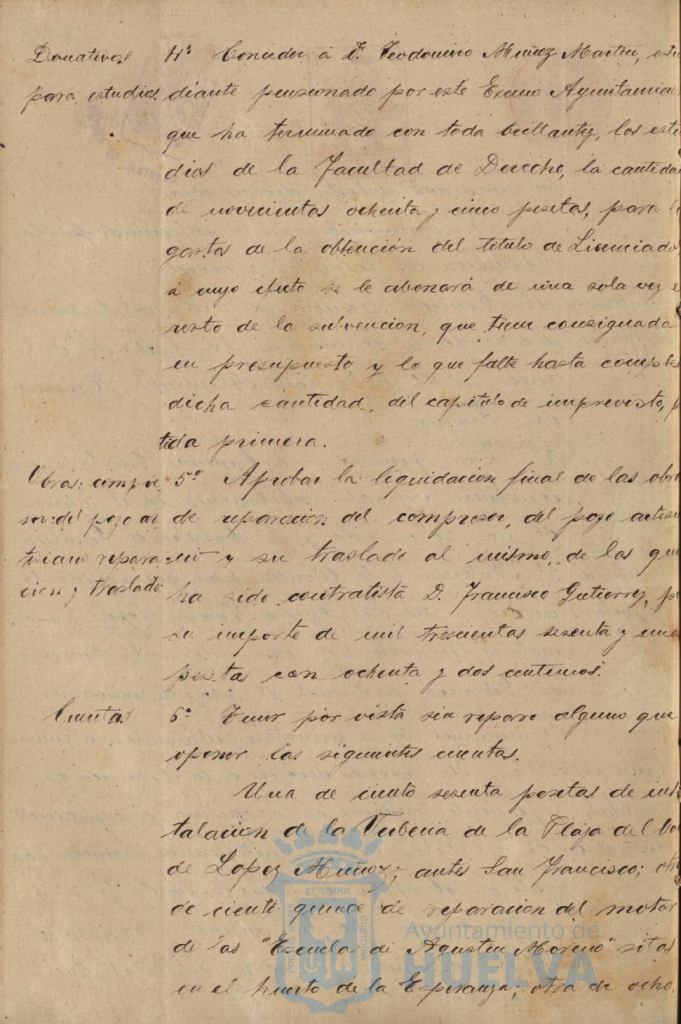 Donativos
para estudios.
4º Conceder á D. Teodomiro Muñoz Martin, estu
diante pensionado por este Excmo Ayuntamien
que ha terminado con toda brillantez, los estu
dios de la Facultad de Derecho, la cantidad
de novecientas ochenta y cinco pesetas, para
gastos de la obtención del título de Licenciado,
á cuyo efecto se le abonará de una sola vez e
resto de la subvencion, que tiene consignada
en presupuesto y lo que falte hasta comple
dicha cantidad, del capitulo de imprevistos, p
tida primera.
Obras: compre
sor: del pozo ar
tesiano repara
cion y traslado
5º Aprobar la liquidacion final de las obras
de reparacion del compresor, del pozo artesi
ano y su traslado al mismo, de las que
ha sido contratista D. Francisco Gutierrez, por
su importe de mil trescientas sesenta y una
pesetas con ochenta y dos centimos.
Cuentas
6º Tener por vista sin reparo alguno que
oponer las siguientes cuentas.
Una de ciento sesenta pesetas de ins
talacion de la Verbena de la Plaza del
de Lopez Muñoz; antes San Francisco; otra
de ciento quince de reparacion del motor
de las "Escuelas de Agustin Moreno" sitas
en el huerto de la Esperanza; otra de ocho,
Ayuntamiento de
HUELVA